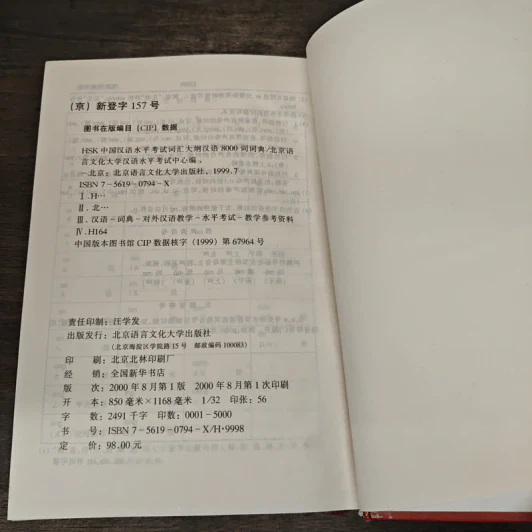 (京) 新登字 157 号
图书在版编目 (CIP) 数据
HSK 中国汉语水平考试词汇大纲汉语 8000 词词典/北京语
言文化大学汉语水平考试中心编。
—北京: 北京语言文化大学出版社, 1999.7
ISBN 7-5619-0794-X
Ⅰ.H…
Ⅱ.北…
Ⅲ.汉语-词典-对外汉语教学-水平考试-教学参考资料
Ⅳ.H164
中国版本图书馆 CIP 数据核字 (1999) 第 67964 号
责任印制: 汪学发
出版发行: 北京语言文化大学出版社
(北京海淀区学院路 15 号 邮政编码 100083)
印 刷: 北京北林印刷厂
经 销: 全国新华书店
版 次: 2000 年 8 月第 1 版 2000 年 8 月第 1 次印刷
开 本: 850 毫米×1168 毫米 1/32 印张: 56
字 数: 2491 千字 印数: 0001-5000
书 号: ISBN 7-5619-0794-X/H·9998
定 价: 98.00 元